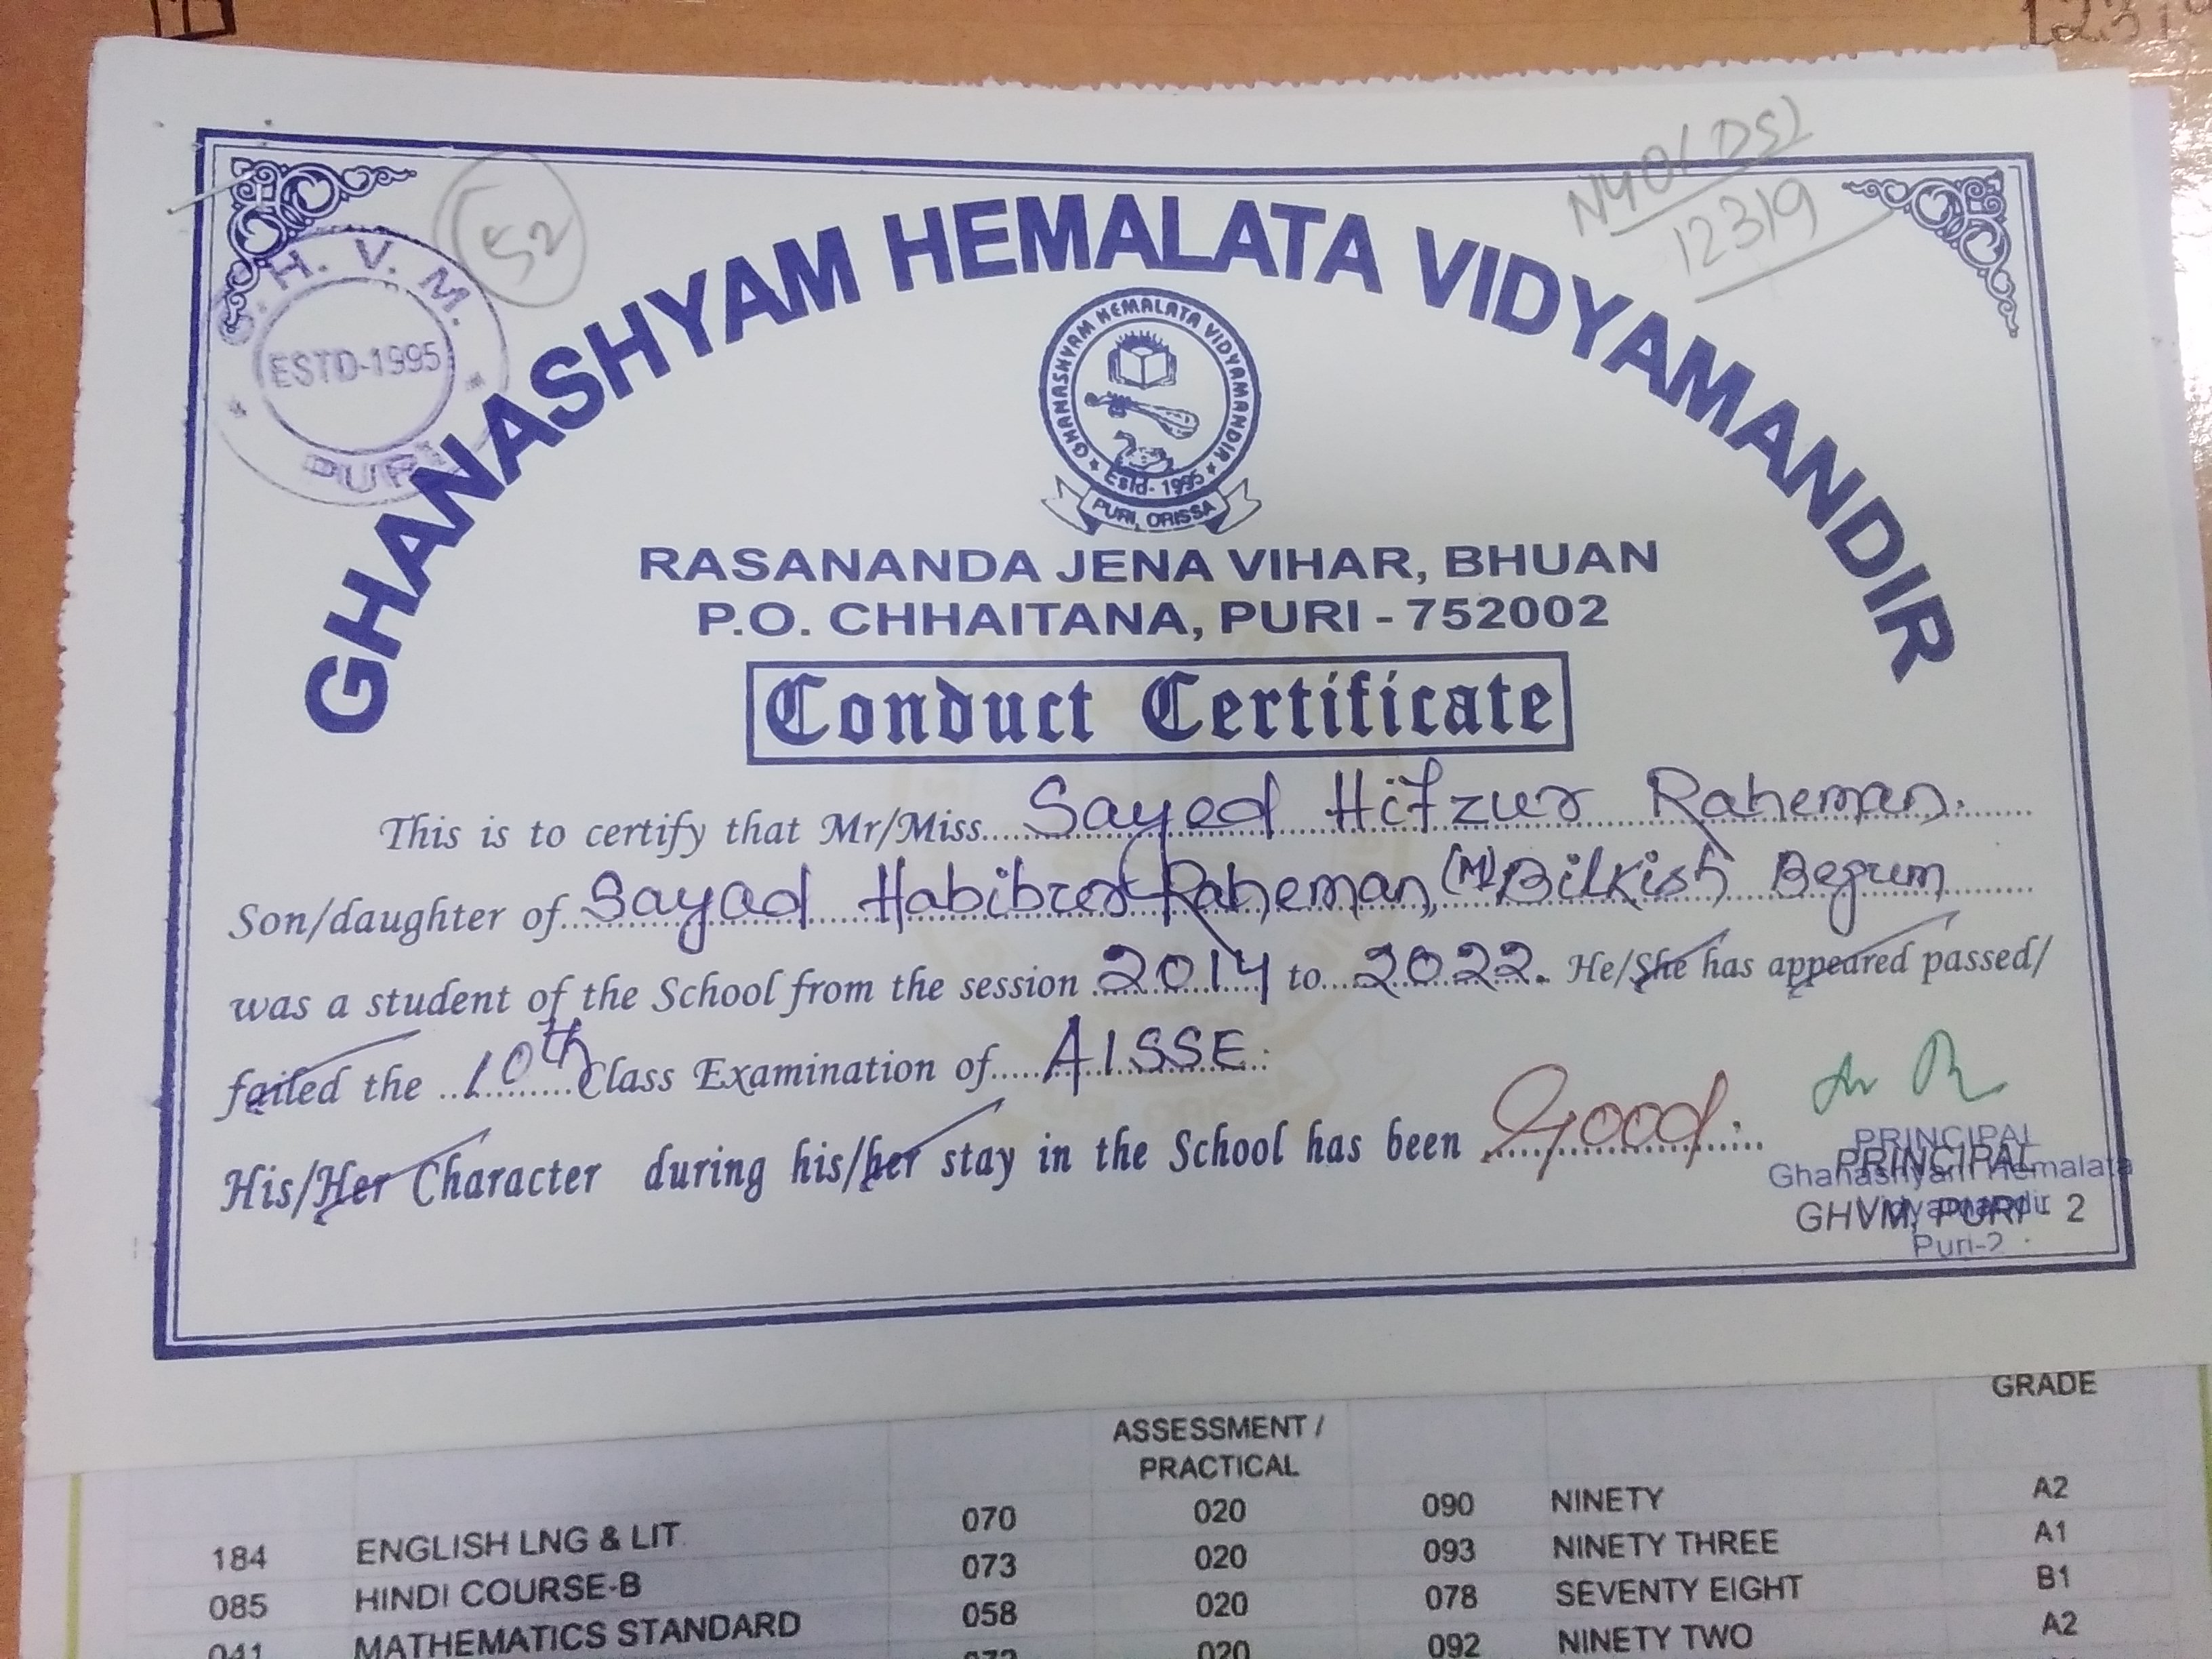 12319
N401DS2
12319
52
G.H.V.M.
ESTD-1995
PURI
GHANASHYAM HEMALATA VIDYAMANDIR
GHANASHYAM HEMALATA VIDYAMANDIR
Estd- 1995
PURI, ORISSA
RASANANDA JENA VIHAR, BHUAN
P.O. CHHAITANA, PURI - 752002
Conduct Certificate
This is to certify that Mr/Miss Sayed Hifzur Raheman.
Son/daughter of Sayad Habibur Raheman, (M) Bilkish Begum
was a student of the School from the session 2014 to 2022. He/She has appeared passed/
failed the 10th Class Examination of AISSE.
His/Her Character during his/her stay in the School has been Good.
PRINCIPAL
Ghanashyam Hemalata
Vidyamandir
Puri-2
PRINCIPAL
GHVM, PURI - 2
GRADE
ASSESSMENT /
PRACTICAL
184 ENGLISH LNG & LIT 070 020 090 NINETY A2
085 HINDI COURSE-B 073 020 093 NINETY THREE A1
041 MATHEMATICS STANDARD 058 020 078 SEVENTY EIGHT B1
072 020 092 NINETY TWO A2